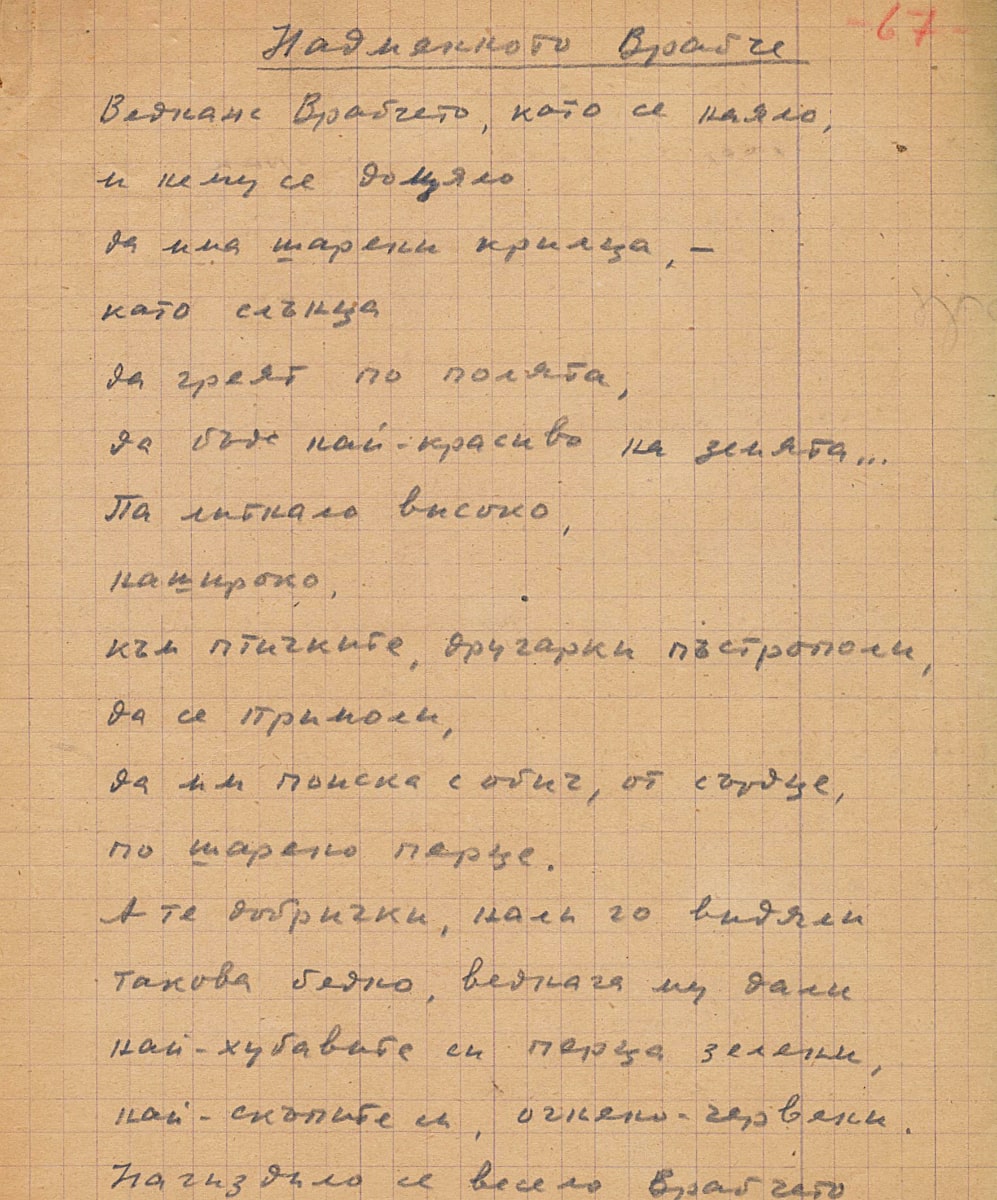 -67-
Надменното Врабче
Веднаж Врабчето, като се наяло,
и нему се дощяло
да има шарени крилца, –
като слънца
да греят по полята,
да бъде най-красиво на земята...
Па литнало високо,
нашироко,
към птичките, другарки пъстрополи,
да се примоли,
да им поиска с обич, от сърдце,
по шарено перце.
А те добрички, нали го видяли
такова бедно, веднага му дали
най-хубавите си перца зелени,
най-скъпите си, огнено-червени.
Нагиздило се весело Врабчето